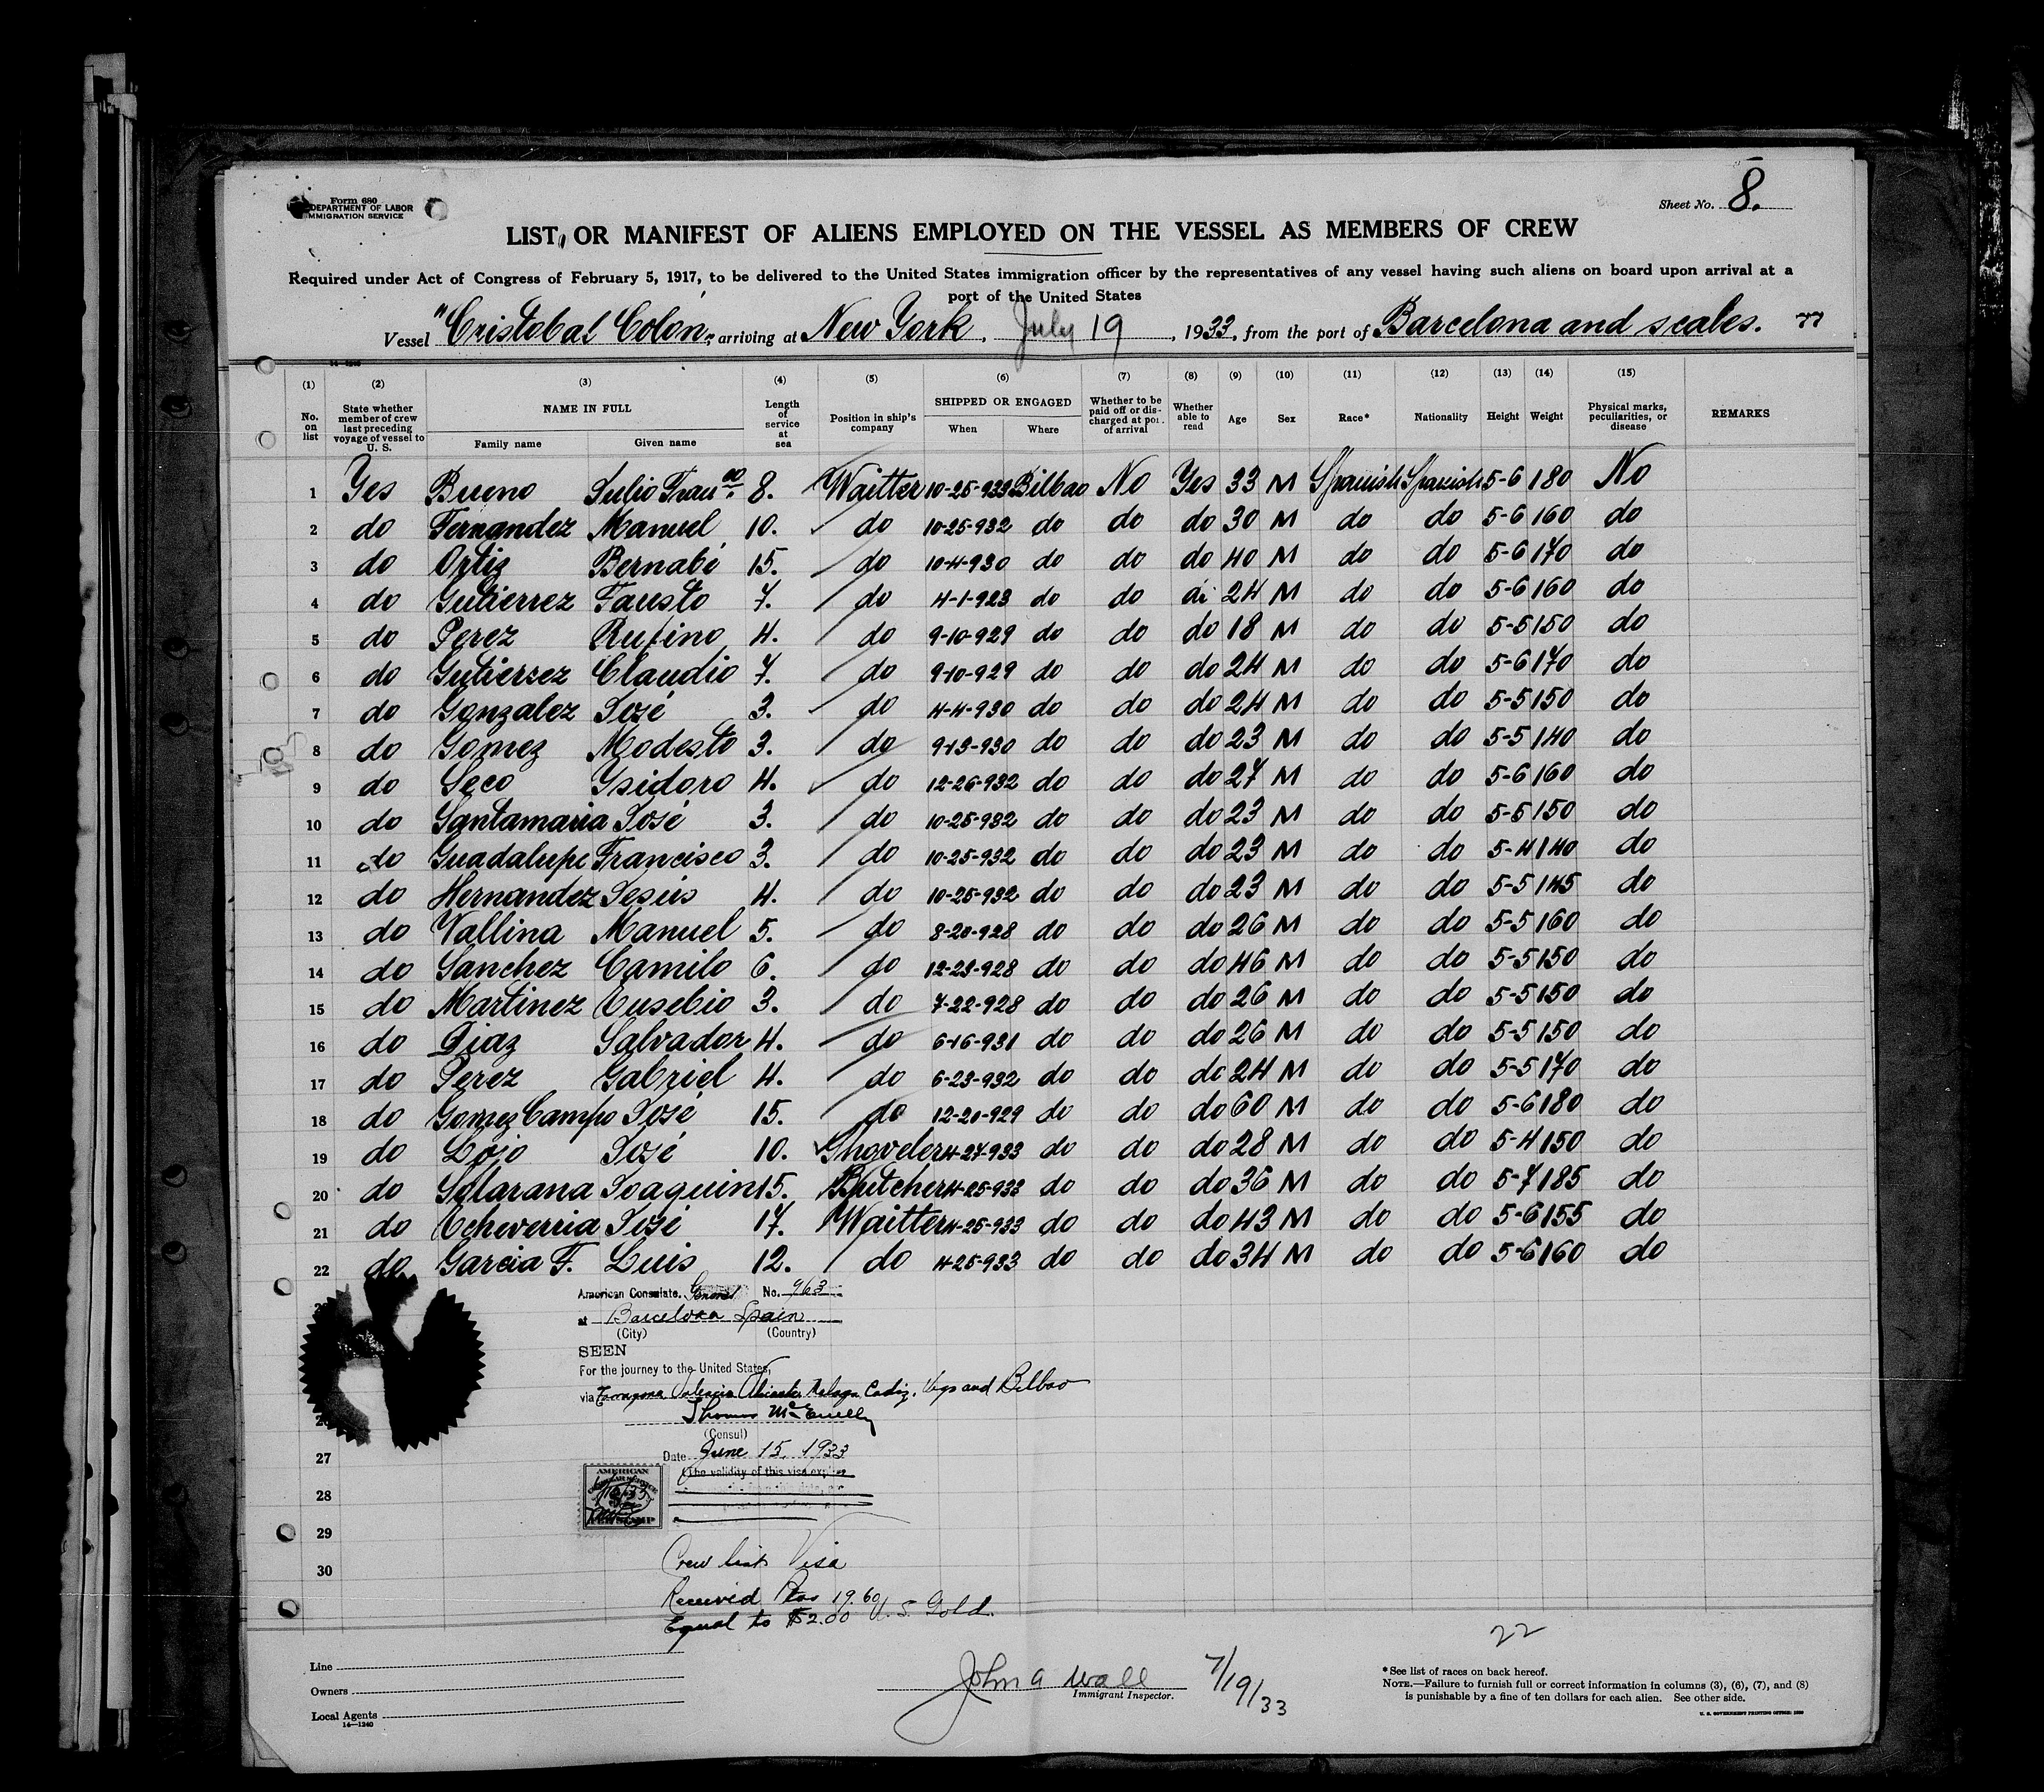 Form 680
DEPARTMENT OF LABOR
IMMIGRATION SERVICE
Sheet No. 8.
LIST, OR MANIFEST OF ALIENS EMPLOYED ON THE VESSEL AS MEMBERS OF CREW
Required under Act of Congress of February 5, 1917, to be delivered to the United States immigration officer by the representatives of any vessel having such aliens on board upon arrival at a
port of the United States
Vessel "Cristobal Colon", arriving at New York, July 19, 1933, from the port of Barcelona and scales. 77
(1) (2) (3) (4) (5) (6) (7) (8) (9) (10) (11) (12) (13) (14) (15)
No. on list State whether member of crew last preceding voyage of vessel to U. S. NAME IN FULL Family name Given name Length of service at sea Position in ship's company SHIPPED OR ENGAGED When Where Whether to be paid off or discharged at port of arrival Whether able to read Age Sex Race* Nationality Height Weight Physical marks, peculiarities, or disease REMARKS
1 Yes Bueno Julio Franco. 8. Waitter 10-25-933 Bilbao No Yes 33 M Spanish Spanish 5-6 180 No
2 do Fernandez Manuel 10. do 10-25-932 do do do 30 M do do 5-6 160 do
3 do Ortiz Bernabé 15. do 10-4-930 do do do 40 M do do 5-6 170 do
4 do Gutierrez Fausto 7. do 4-1-923 do do do 24 M do do 5-6 160 do
5 do Perez Rufino 4. do 9-10-929 do do do 18 M do do 5-5 150 do
6 do Gutierrez Claudio 7. do 9-10-929 do do do 24 M do do 5-6 170 do
7 do Gonzalez José 3. do 4-4-930 do do do 24 M do do 5-5 150 do
8 do Gomez Modesto 3. do 9-13-930 do do do 23 M do do 5-5 140 do
9 do Seco Ysidoro 4. do 12-26-932 do do do 27 M do do 5-6 160 do
10 do Santamaria José 3. do 10-25-932 do do do 23 M do do 5-5 150 do
11 do Guadalupe Francisco 3. do 10-25-932 do do do 23 M do do 5-4 140 do
12 do Hernandez Jesús 4. do 10-25-932 do do do 23 M do do 5-5 145 do
13 do Vallina Manuel 5. do 8-20-928 do do do 26 M do do 5-5 160 do
14 do Sanchez Camilo 6. do 12-23-928 do do do 46 M do do 5-5 150 do
15 do Martinez Eusebio 3. do 7-22-928 do do do 26 M do do 5-5 150 do
16 do Diaz Salvador 4. do 6-16-931 do do do 26 M do do 5-5 150 do
17 do Perez Gabriel 4. do 6-23-932 do do do 24 M do do 5-5 170 do
18 do Gomez Campo José 15. do 12-20-929 do do do 60 M do do 5-6 180 do
19 do Lojo José 10. Shoveler 4-27-933 do do do 28 M do do 5-4 150 do
20 do Solarana Joaquin 15. Butcher 4-25-933 do do do 36 M do do 5-7 185 do
21 do Echeverria José 17. Waitter 4-25-933 do do do 43 M do do 5-6 155 do
22 do Garcia F. Luis 12. do 4-25-933 do do do 34 M do do 5-6 160 do
American Consulate. General No. 963
at Barcelona Spain
(City) (Country)
SEEN
For the journey to the United States,
via Tarragona Valencia Alicante Malaga Cadiz, Vigo and Bilbao
Thomas McEnelly
(Consul)
27
Date June 15, 1933
The validity of this visa expires
AMERICAN
28
29
Crew list Visa
30
Received Ptas 19.60
Equal to $2.00 U. S. Gold.
22
Line
Owners
Local Agents
14—1240
John A Wall 7/19/33
Immigrant Inspector.
*See list of races on back hereof.
NOTE.—Failure to furnish full or correct information in columns (3), (6), (7), and (8)
is punishable by a fine of ten dollars for each alien. See other side.
U. S. GOVERNMENT PRINTING OFFICE: 1930